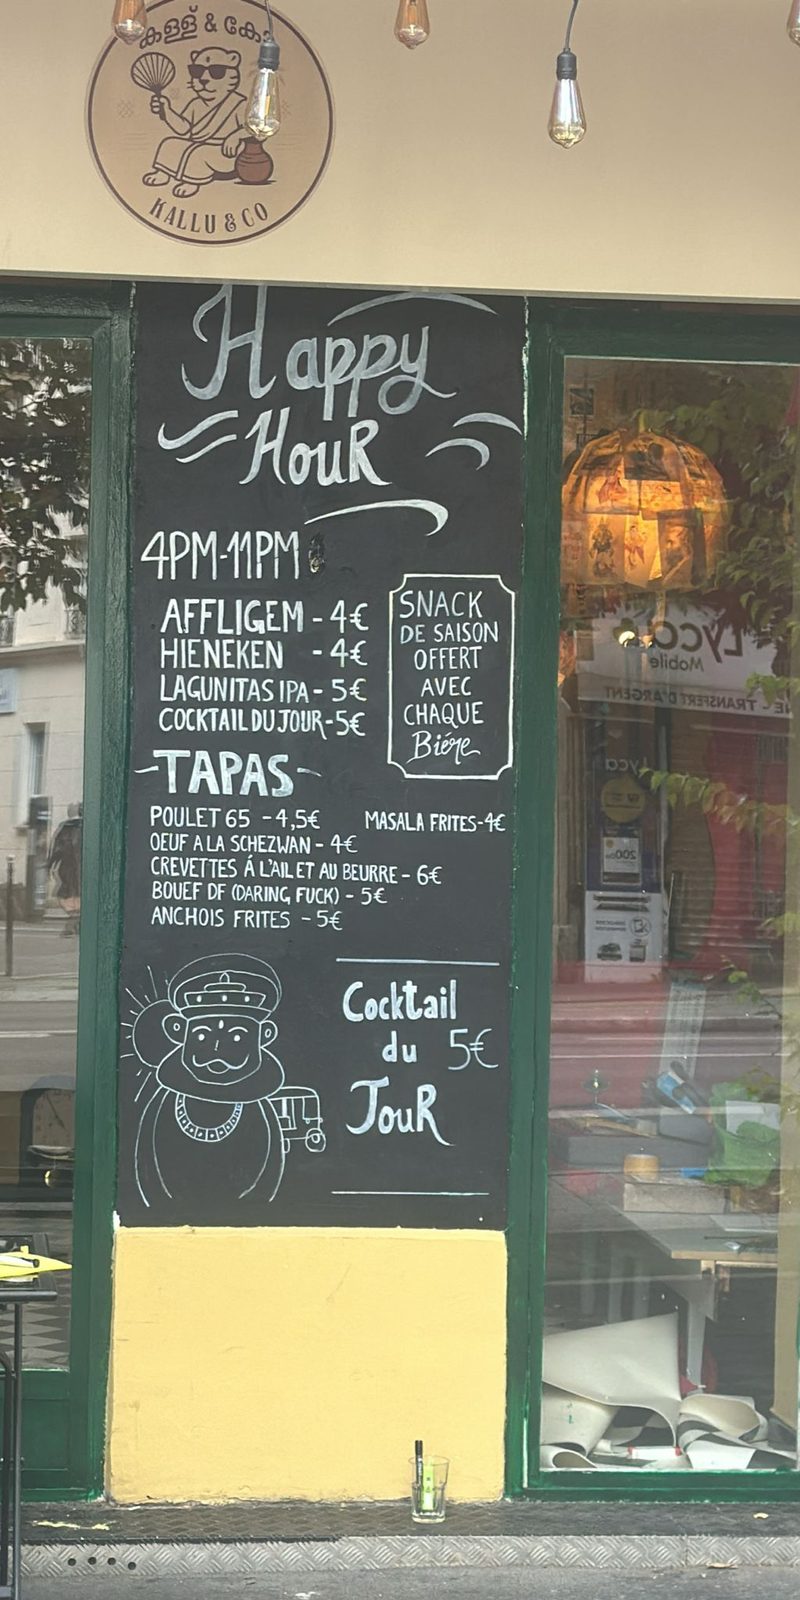 കള്ള് & കോ
KALLU & CO
Happy
HouR
4PM-11PM
AFFLIGEM - 4€
HIENEKEN - 4€
LAGUNITAS IPA - 5€
COCKTAIL DU JOUR - 5€
SNACK
DE SAISON
OFFERT
AVEC
CHAQUE
Biére
-TAPAS-
POULET 65 - 4,5€
MASALA FRITES - 4€
OEUF A LA SCHEZWAN - 4€
CREVETTES Á L'AIL ET AU BEURRE - 6€
BOUEF DF (DARING FUCK) - 5€
ANCHOIS FRITES - 5€
Cocktail
du 5€
JouR
Lyca
Mobile
TRANSFERT D'ARGENT
Lyca